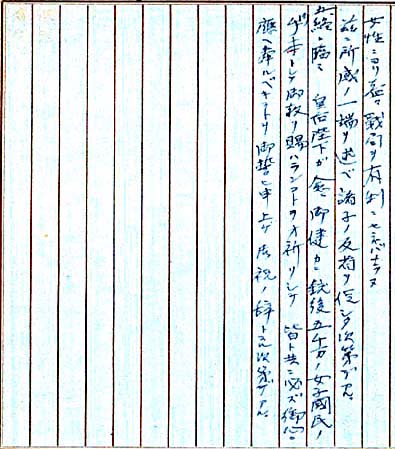 女性ニヨリ益々戦局ヲ有利ニセネバナラヌ
茲ニ所感ノ一端ヲ述ベ諸子ノ反省ヲ促シタ次第デアル
終ニ臨ミ 皇后陛下ガ愈々御健カニ銃後五千万ノ女子國民ノ
トシテ御救ヲ賜ハランコトヲオ祈リシテ 皆ト共ニ必ズ御心ニ
ヘ奉ルベキコトヲ御誓ヒ申上ゲ 奉祝ノ辞トスル次第デアル